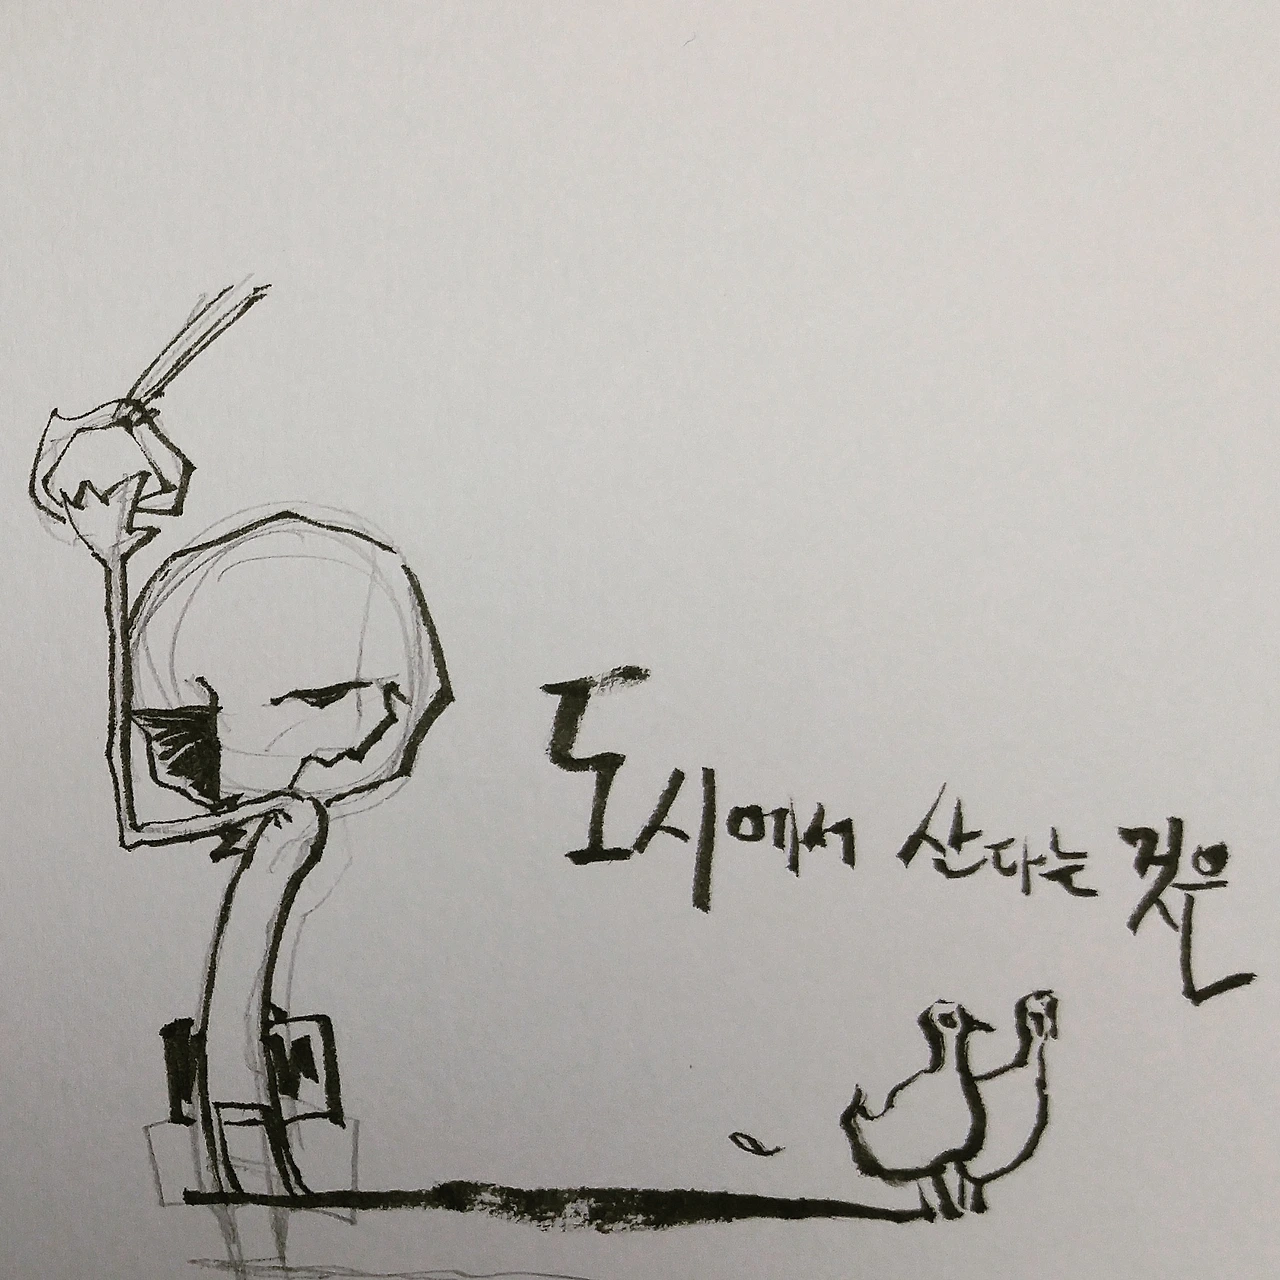 도시에서 산다는 것은